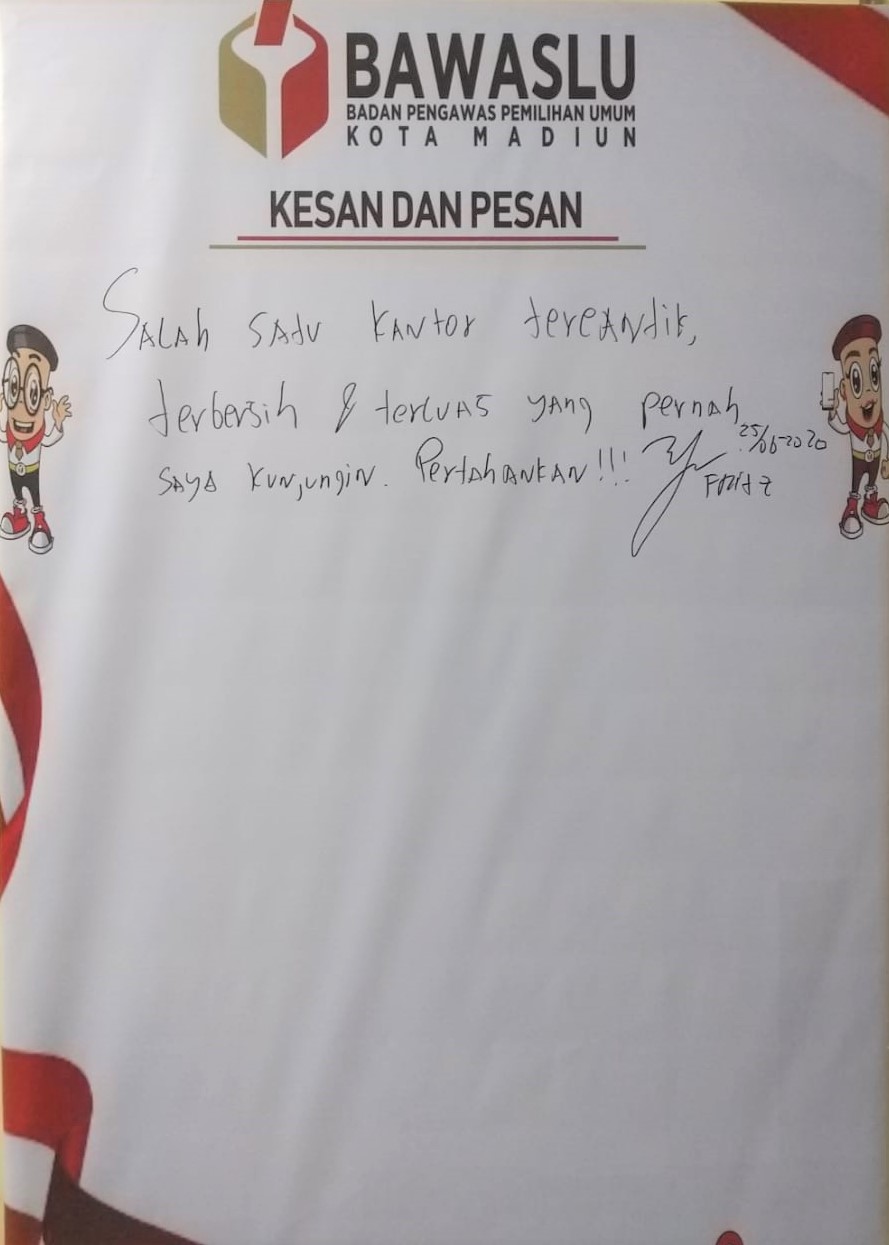 BAWASLU
BADAN PENGAWAS PEMILIHAN UMUM
KOTA MADIUN
KESAN DAN PESAN
SALAh SAtU KANtor tercANtik,
terbersih & terLUAS yANg pernah
25/06-2020
SAYA KUNjungiN. PertahANKAN!!!